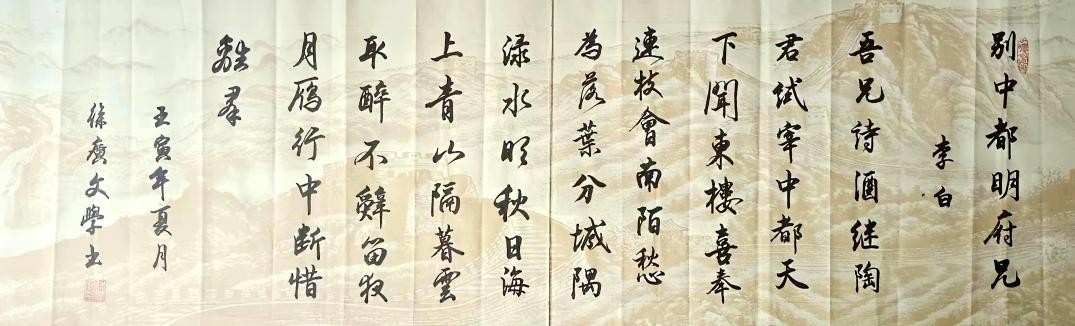 別中都明府兄
李白
吾兄詩酒继陶
君试宰中都天
下聞東樓喜奉
連枝會南陌愁
為落葉分城隅
渌水明秋日海
上青山隔暮雲
取醉不辤留夜
月鴈行中断惜
離羣
壬寅年夏月
徐廣文學书